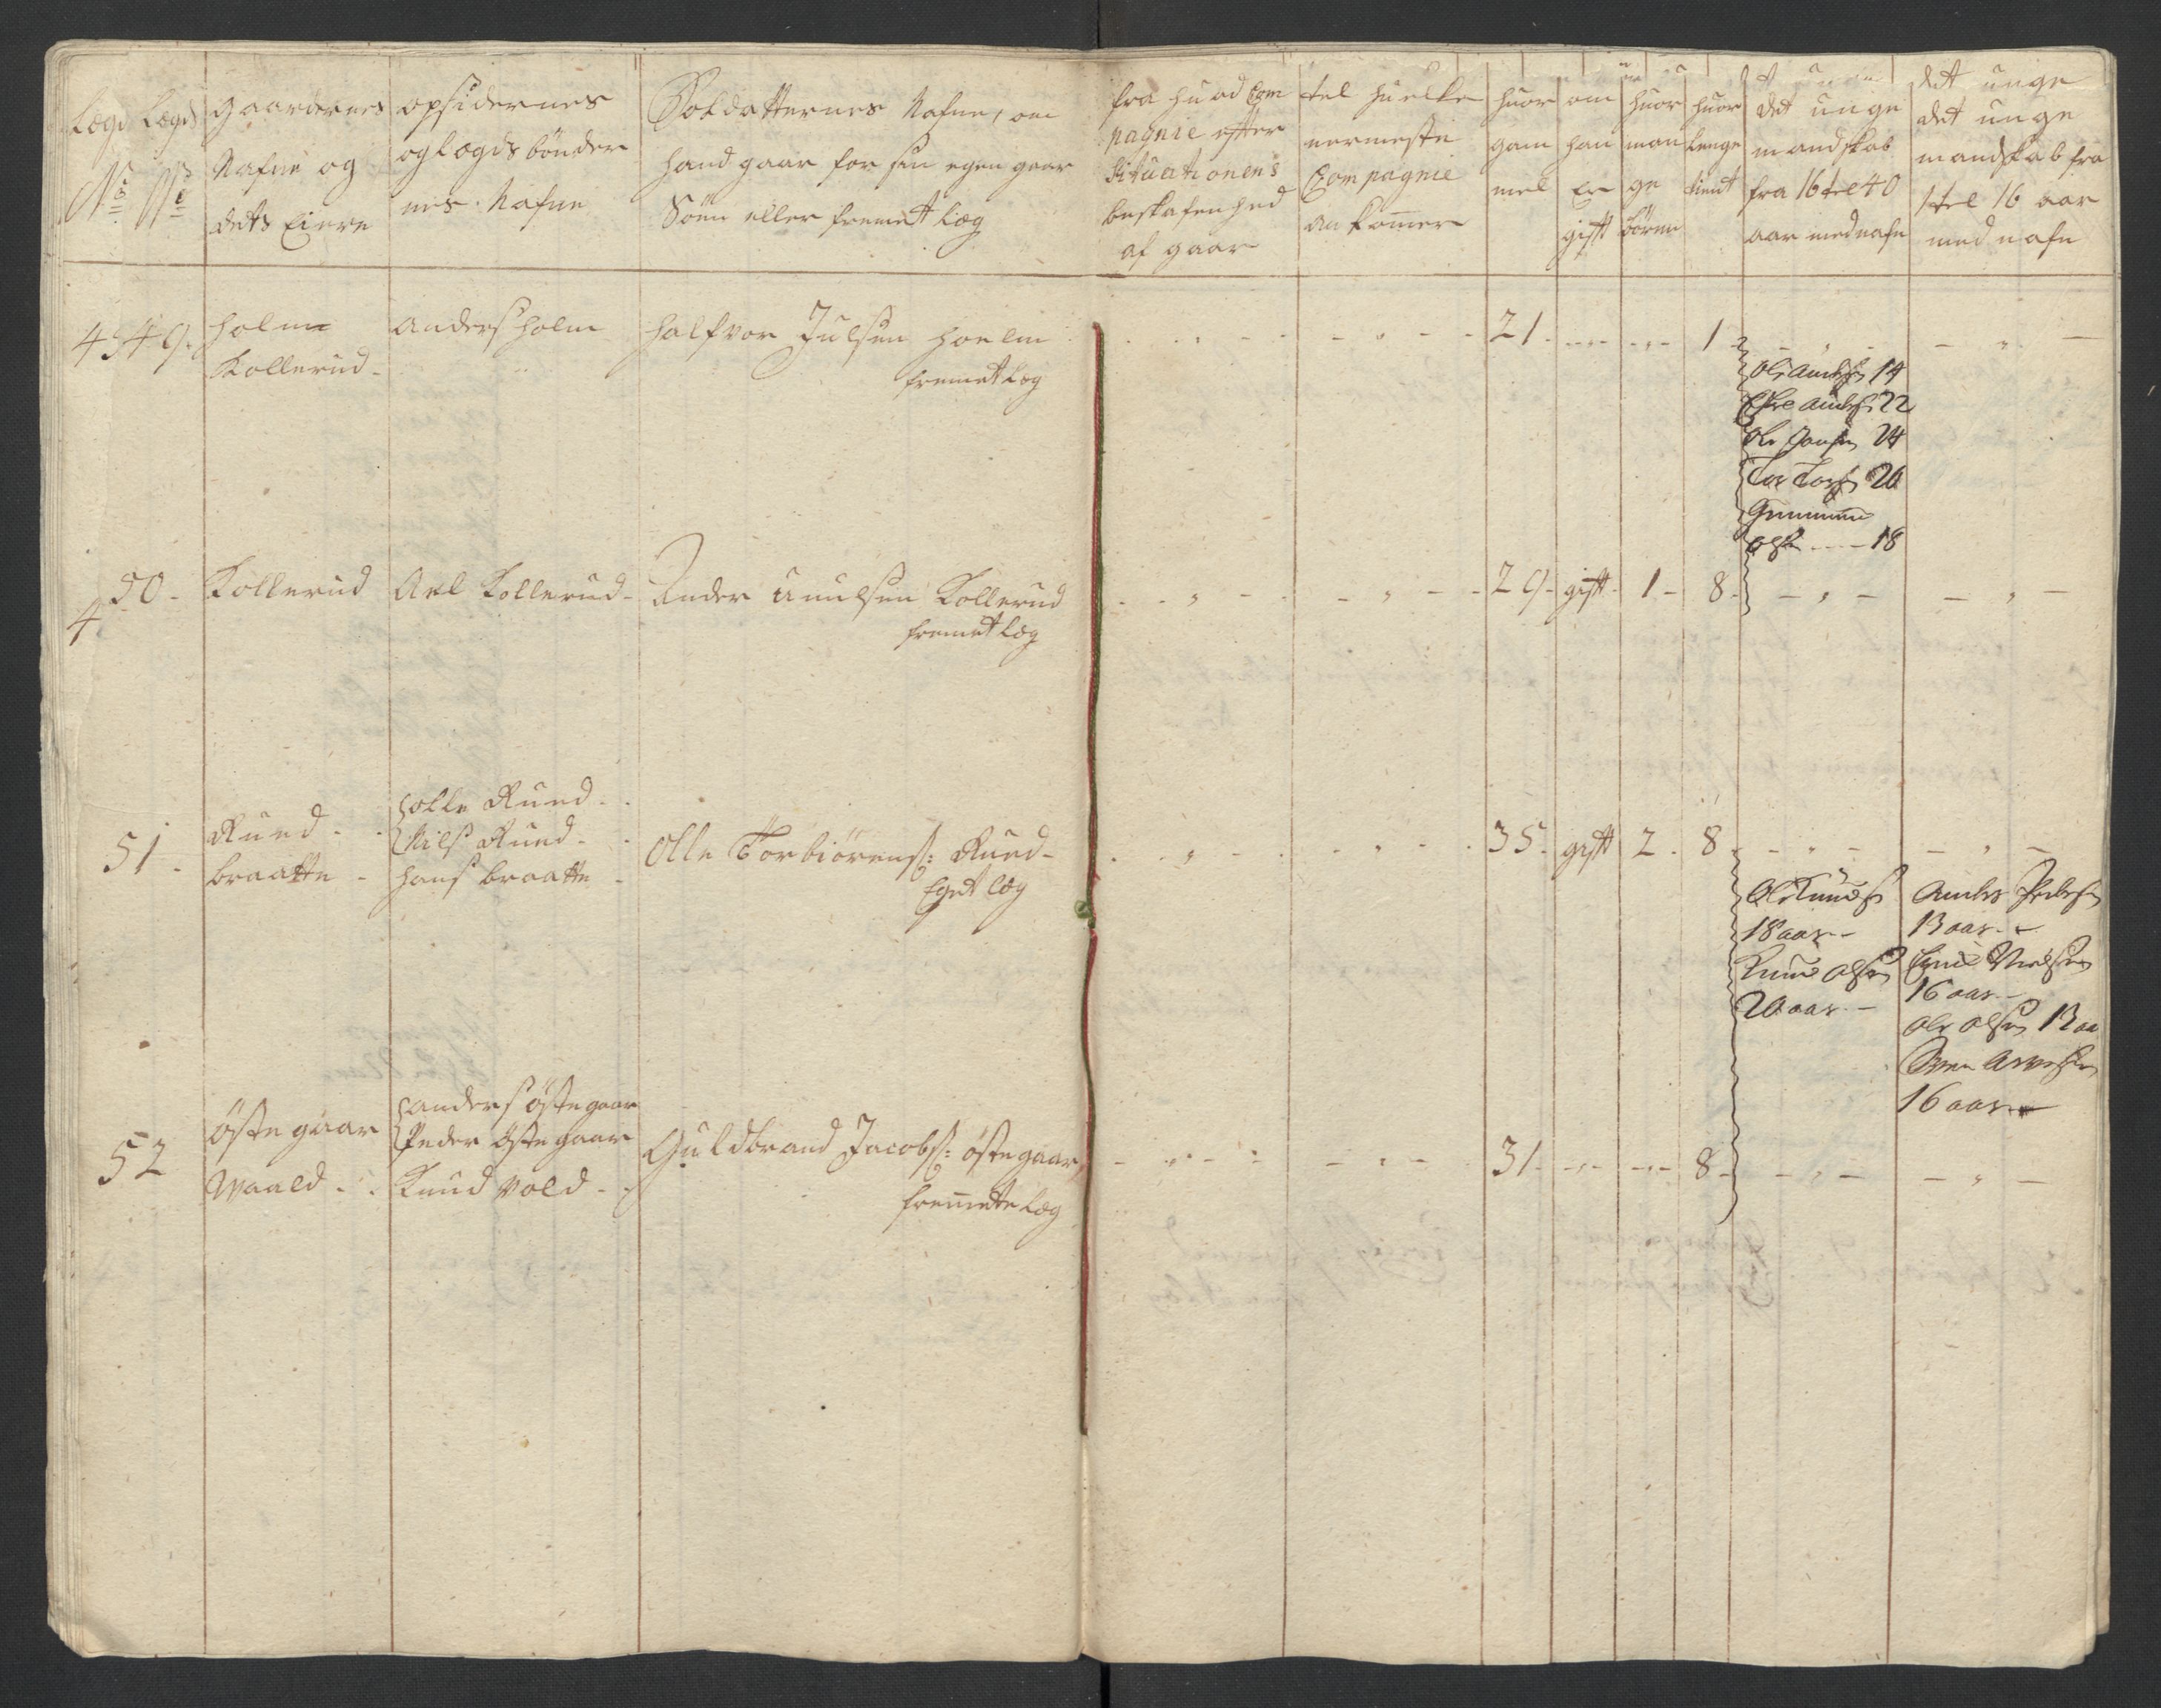 Lægd Lægds
No No
gaardernes
Nafne og
dets Eiere
opsidernes
og Lægds bönder
nes Nafne
Soldatternes Nafne, om
hand gaar for sin egen gaar
Sönn eller fremet Læg
fra huad Com
pagnie efter
Situationens
beskafenhed
af gaar
tel huelke
nermeste
Compagnie
ankomer
huor
gam
mel
om
han
Er
gift
huor
man
ge
börne
huor
lenge
tient
det unge
mandskab
fra 16 tel 40
aar med nafn
det unge
det unge
mandskab fra
1 tel 16 aar
med nafn
4 49.
holm
Kollerud
anders holm
halfvor Julsen hoelm
fremet Læg
21
1
Ole Anders 14
22
Ole Joensen 24
Tor Tors 26
Gunmund
Olsen 18
4 50
Kollerud
Axl Kollerud
Ander Knulsen Kollerud
fremet Læg
29 gift 1 8
51
Ruud
braatte
holle Ruud
Nils Ruud
hans braatte
Olle Torbiörens: Ruud
Eget Læg
35 gift 2 8
Ole Knuds
18 aar
Knud Olsen
20 aar
Anders Pedersen
13 aar
Nielsen
16 aar
Ole Olsen 13 aa
Sven
16 aar
52
östegaar
Waald
anders östegaar
Peder östegaar
Knud Vold
Guldbrand Jacobs: östegaar
fremete Læg
31 8